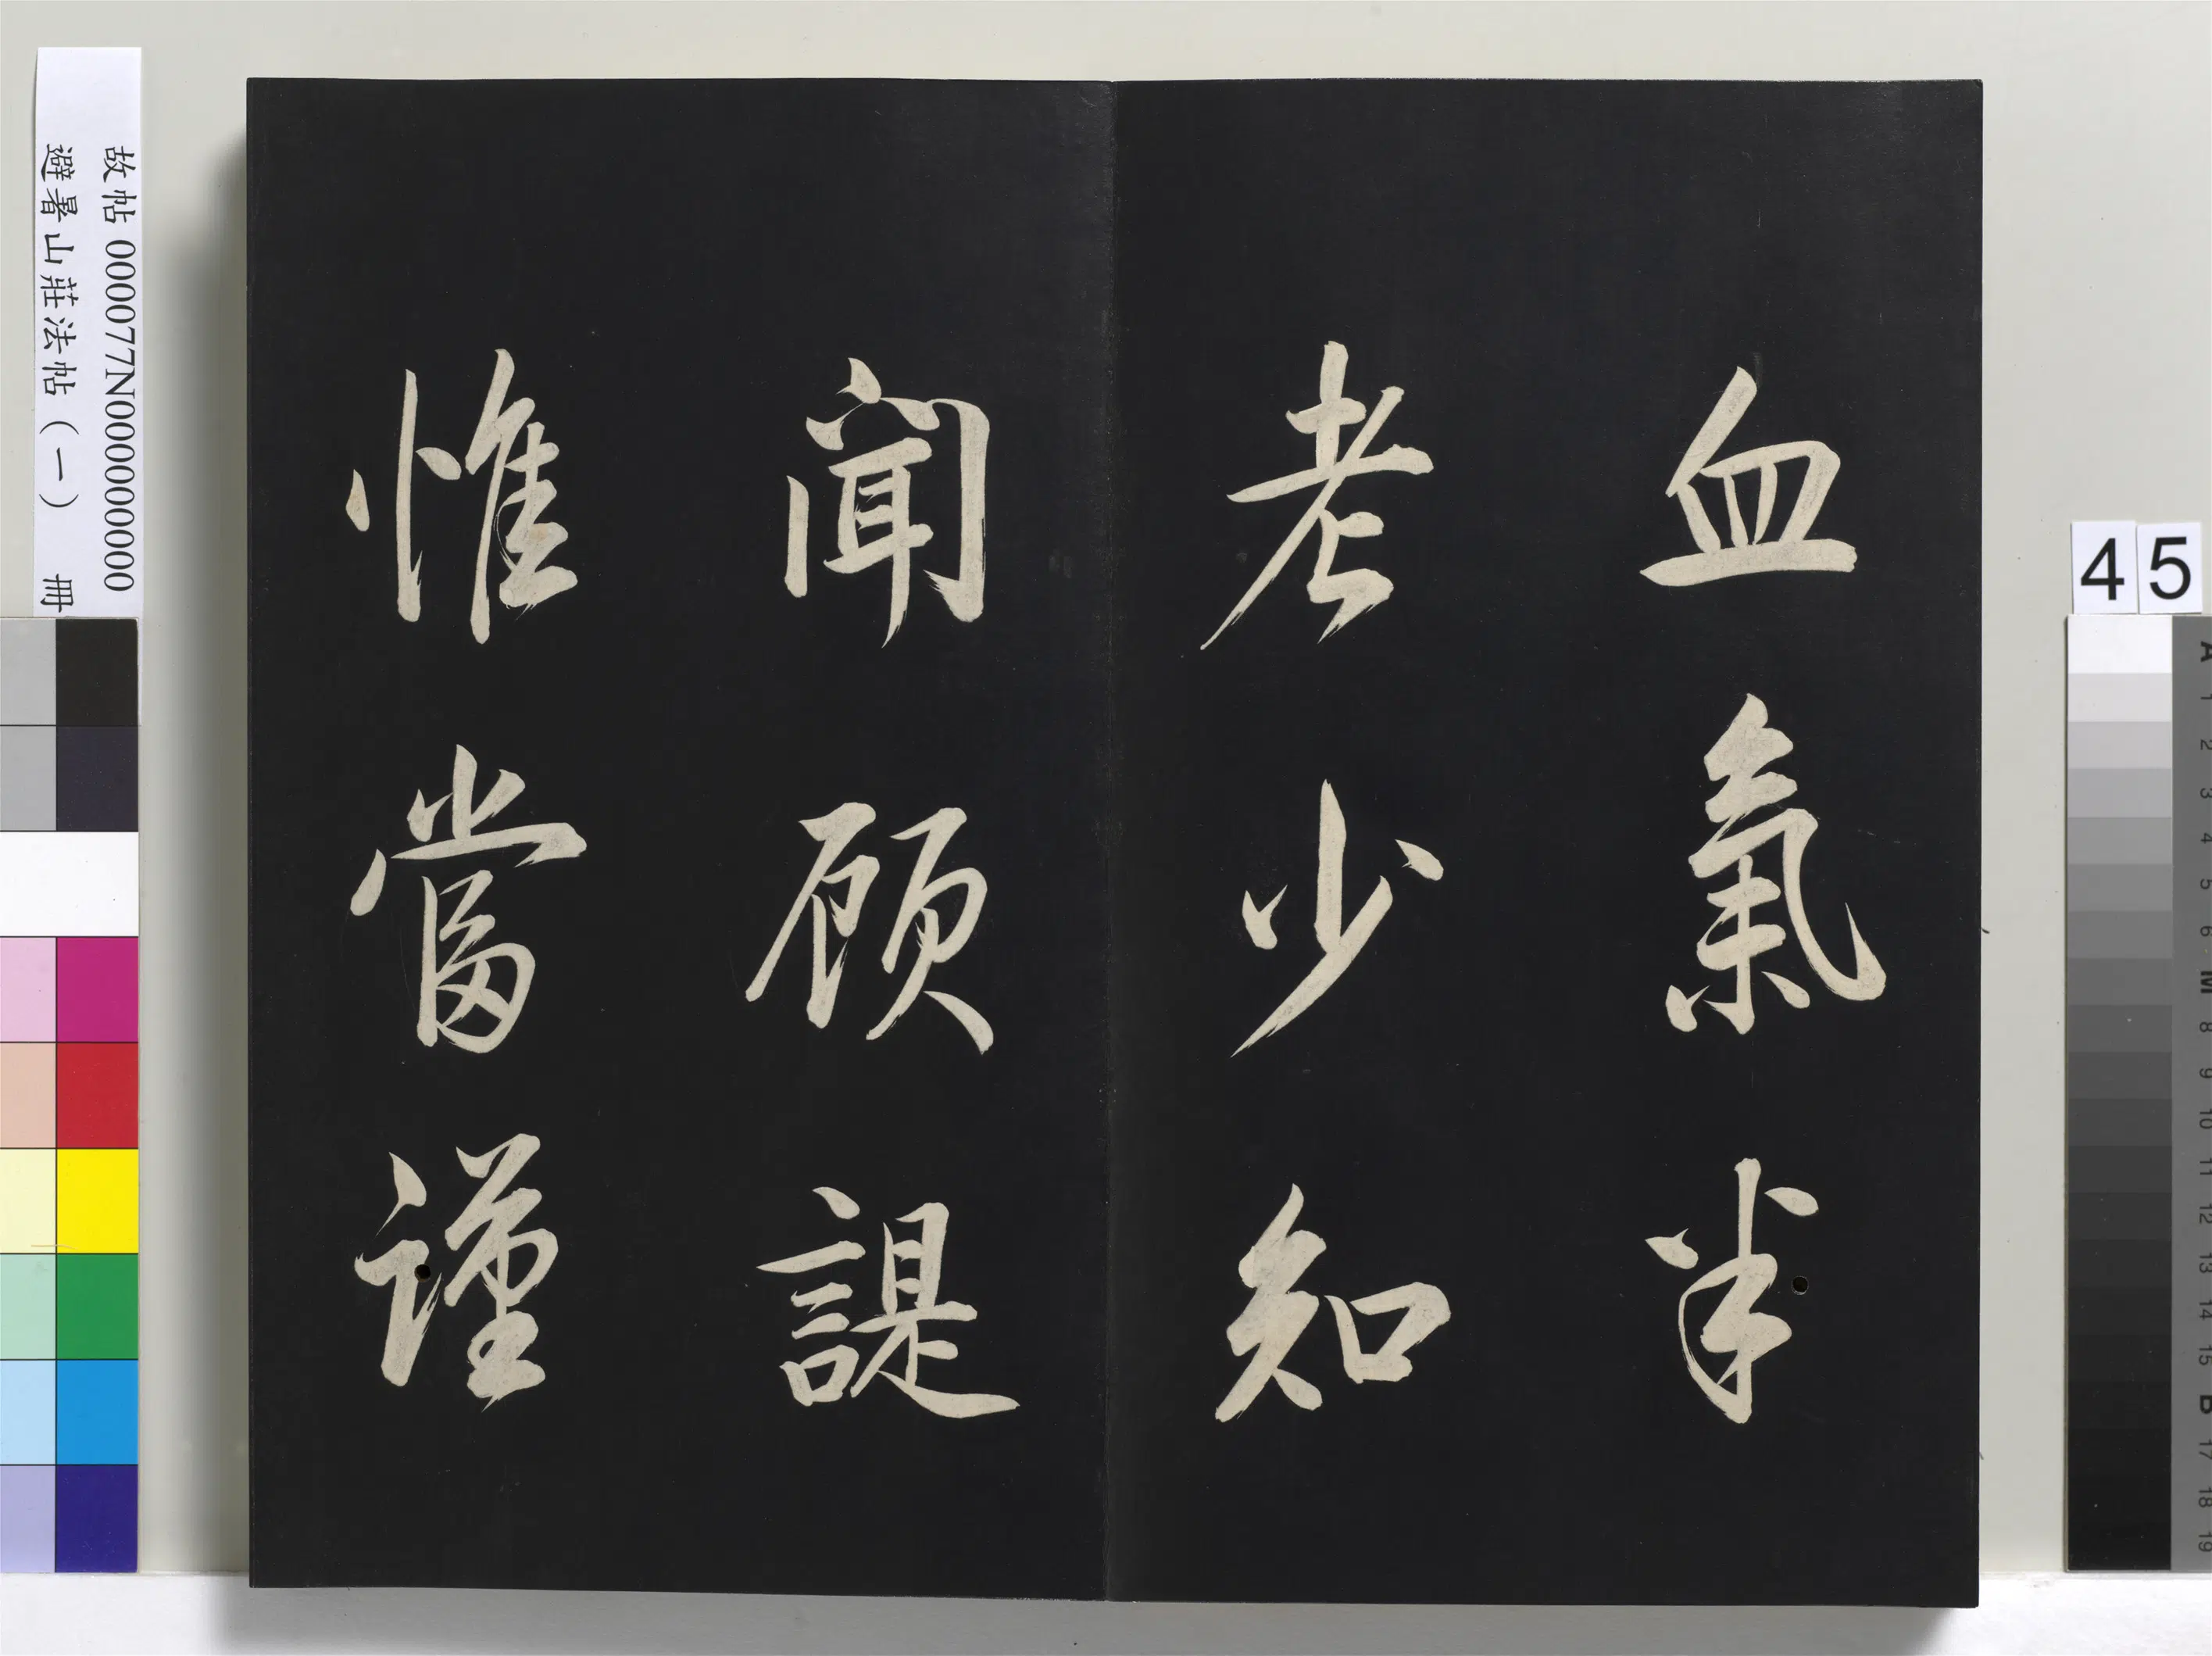 血氣半
考少知
聞顧諟
惟當謹
故帖 000077N000000000
避暑山莊法帖（一） 冊
45
A
1
2
3
4
5
6
M
8
9
10
11
12
13
14
15
B
17
18
19